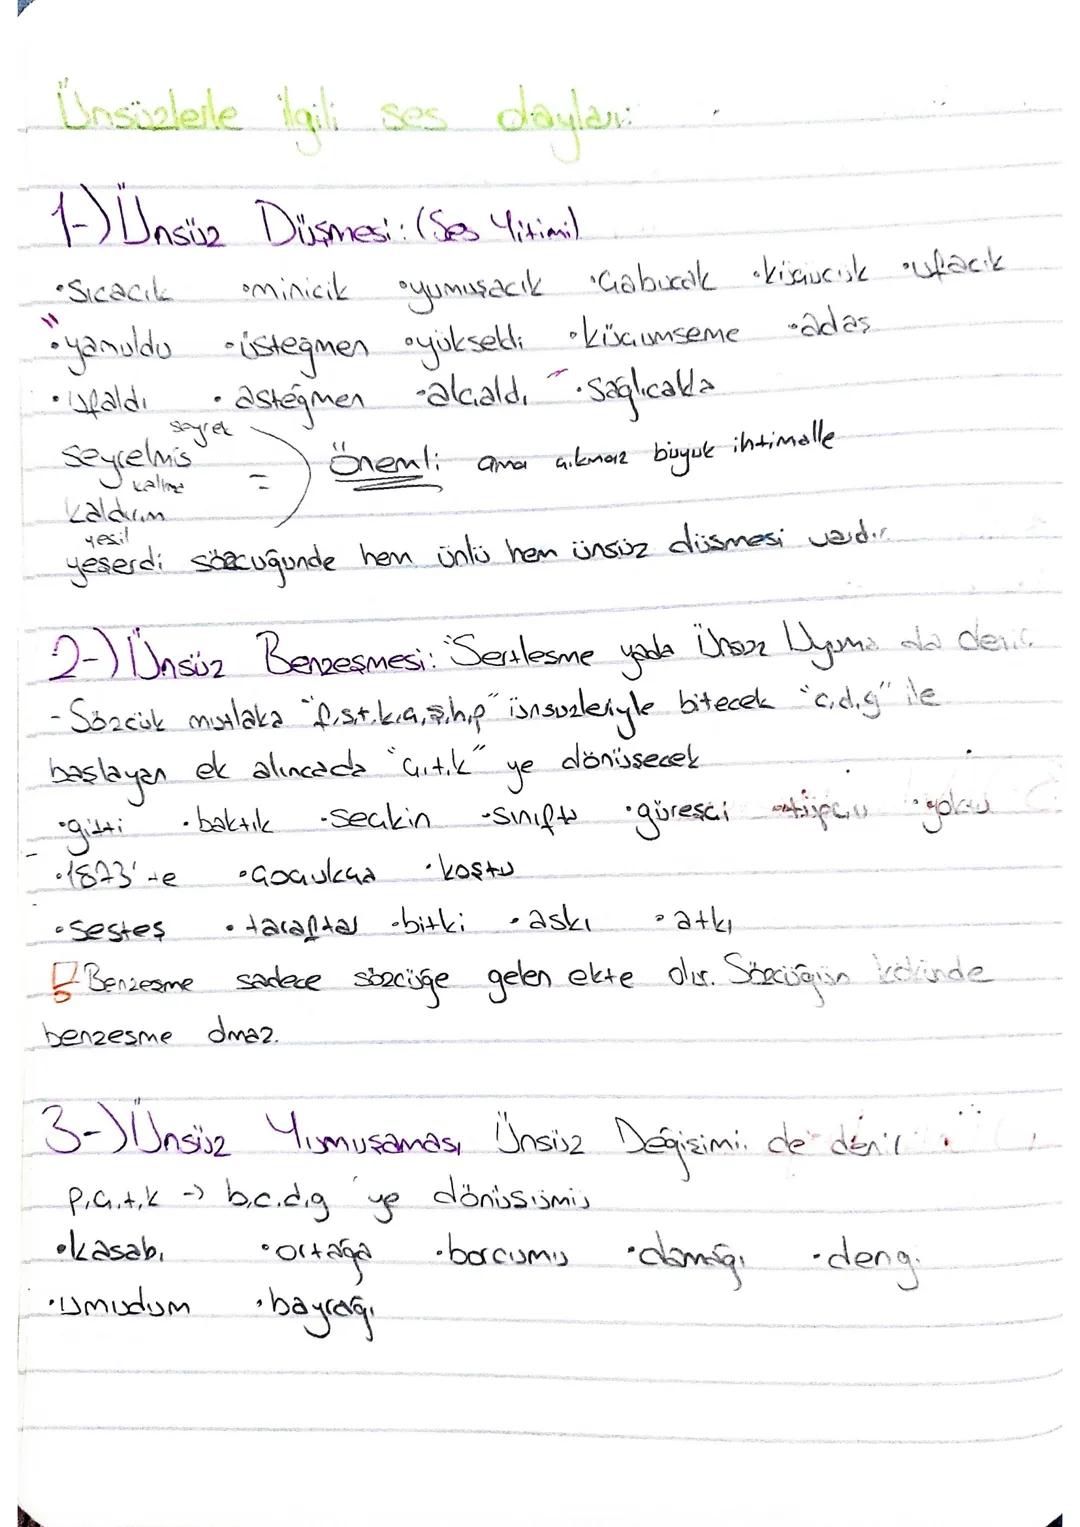 Ünsüzlerle ilgili ses olayları:
1-) Ünsüz Düşmesi: (Ses Yitimi)
•Sıcacık •minicik •yumuşacık •Çabucak •küçücük •ufacık
" •yamuldu •üsteğmen •yükseldi •küçümseme •adaş
•ufaldı •asteğmen •alçaldı " •sağlıcakla
seyrek
seyrelmiş = Önemli ama çıkmaz büyük ihtimalle
kaldırım
yeşil
yeşerdi sözcüğünde hem ünlü hem ünsüz düşmesi vardır.
2-) Ünsüz Benzeşmesi: Sertleşme yada Ünsüz Uyumu da denir.
- Sözcük mutlaka "f,s,t,k,ç,ş,h,p" ünsüzleriyle bitecek "c,d,g" ile
başlayan ek alıncada "ç,t,k" ye dönüşecek
•gitti •baktık •seçkin •sınıfta •güreşçi •tüpçü
•1873'te •çocukça •koştu
•sesteş •taraftar •bitki •askı •atkı
! Benzeşme sadece sözcüğe gelen ekte olur. Sözcüğün kökünde
benzeşme olmaz.
3-) Ünsüz Yumuşaması Ünsüz Değişimi de denir
p,ç,t,k -> b,c,d,g ye dönüşümü
•kasabı •ortağa •borcumu •damağı •dengi
•umudum •bayrağı